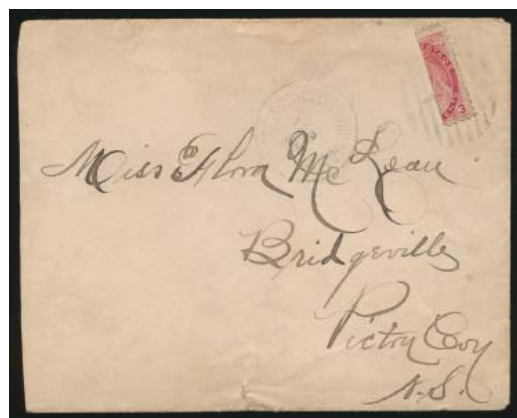 3
Miss Flora McLean
Bridgeville
Pictou Coy
N.S.